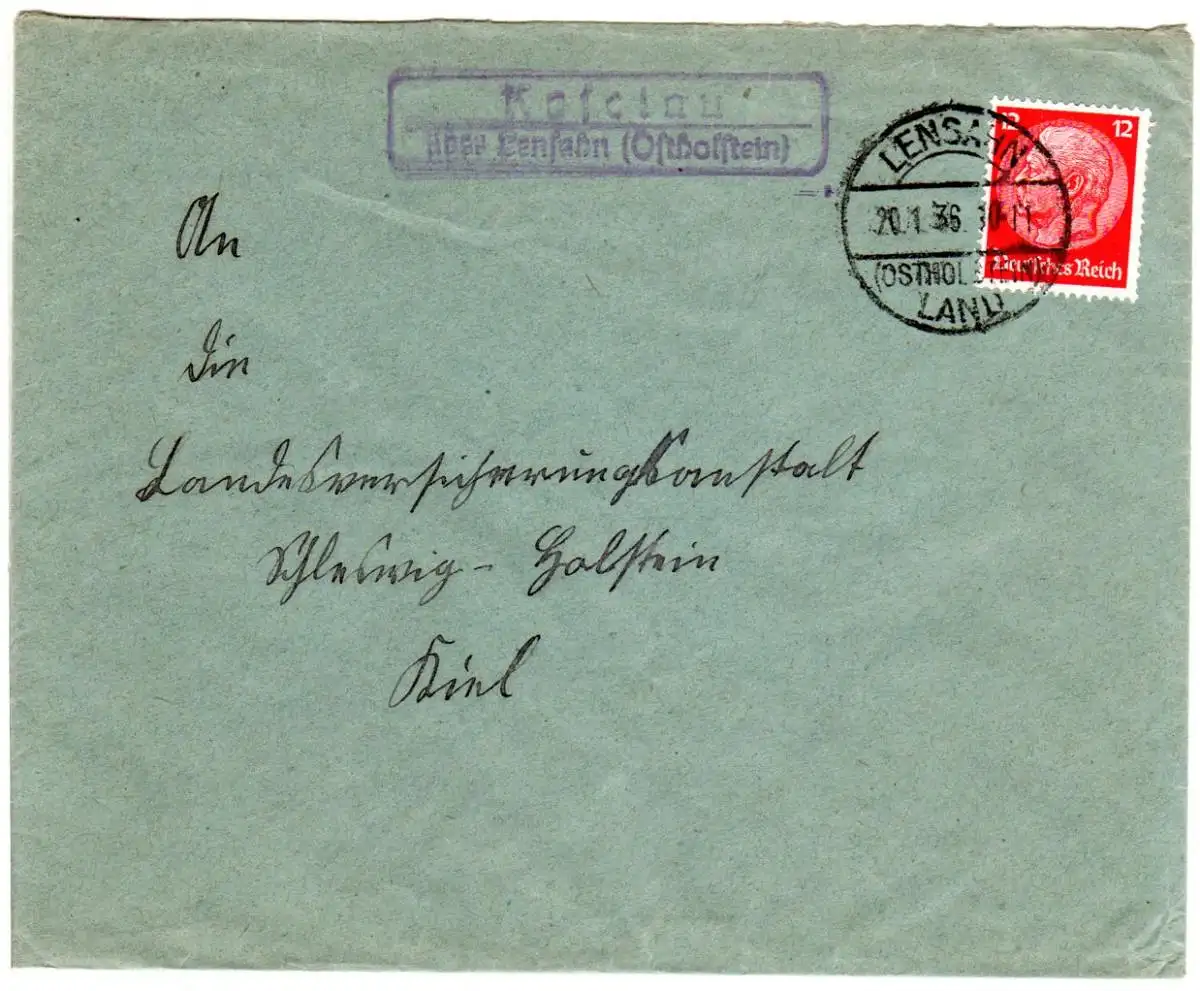 Koselau
über Lensahn (Ostholstein)
12 12
LENSAHN
20.1.36. 10-11
(OSTHOLSTEIN)
LAND
Deutsches Reich
An
die
Landesversicherungsanstalt
Schleswig-Holstein
Kiel